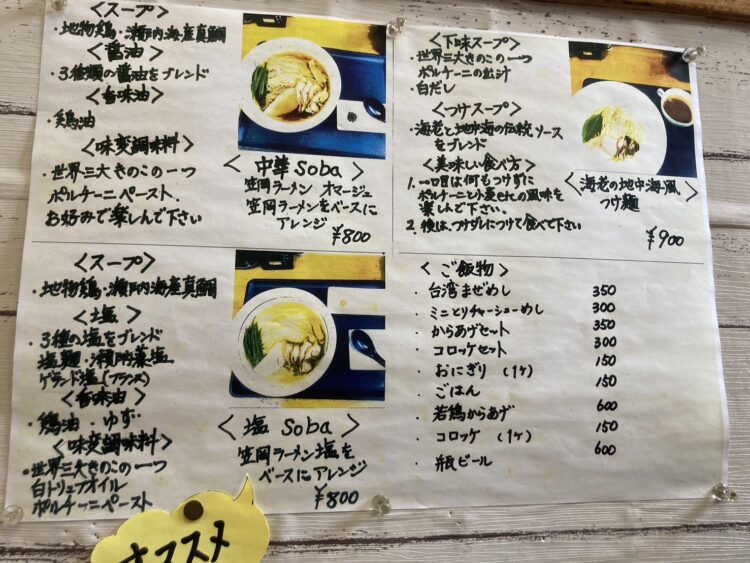 <スープ>
・地物鶏・瀬戸内海産真鯛
<醤油>
・3種類の醤油をブレンド
<香味油>
・鶏油
<味変調味料>
・世界三大きのこの一つ
ポルチーニペースト.
お好みで楽しんで下さい
<中華 Soba>
笠岡ラーメン オマージュ
笠岡ラーメンをベースに
アレンジ
¥800
<スープ>
・地物鶏・瀬戸内海産真鯛
<塩>
・3種の塩をブレンド
塩麹・瀬戸内藻塩
ゲランド塩(フランス)
<香味油>
・鶏油・ゆず
<味変調味料>
・世界三大きのこの一つ
白トリュフオイル
ポルチーニペースト
<塩 Soba>
笠岡ラーメン塩を
ベースにアレンジ
¥800
オススメ
<下味スープ>
・世界三大きのこの一つ
ポルチーニの出汁
・白だし
<つけスープ>
・海老と地中海の伝統ソース
をブレンド
<美味しい食べ方>
1. 一口目は何もつけずに
ポルチーニと小麦の風味を
楽しんで下さい.
2. 後は、つけダレにつけて食べて下さい
<海老の地中海風
つけ麺>
¥900
<ご飯物>
・台湾まぜめし 350
・ミニとりチャーシューめし 300
・からあげセット 350
・コロッケセット 300
・おにぎり (1ケ) 150
・ごはん 150
・若鶏からあげ 600
・コロッケ (1ケ) 150
・瓶ビール 600